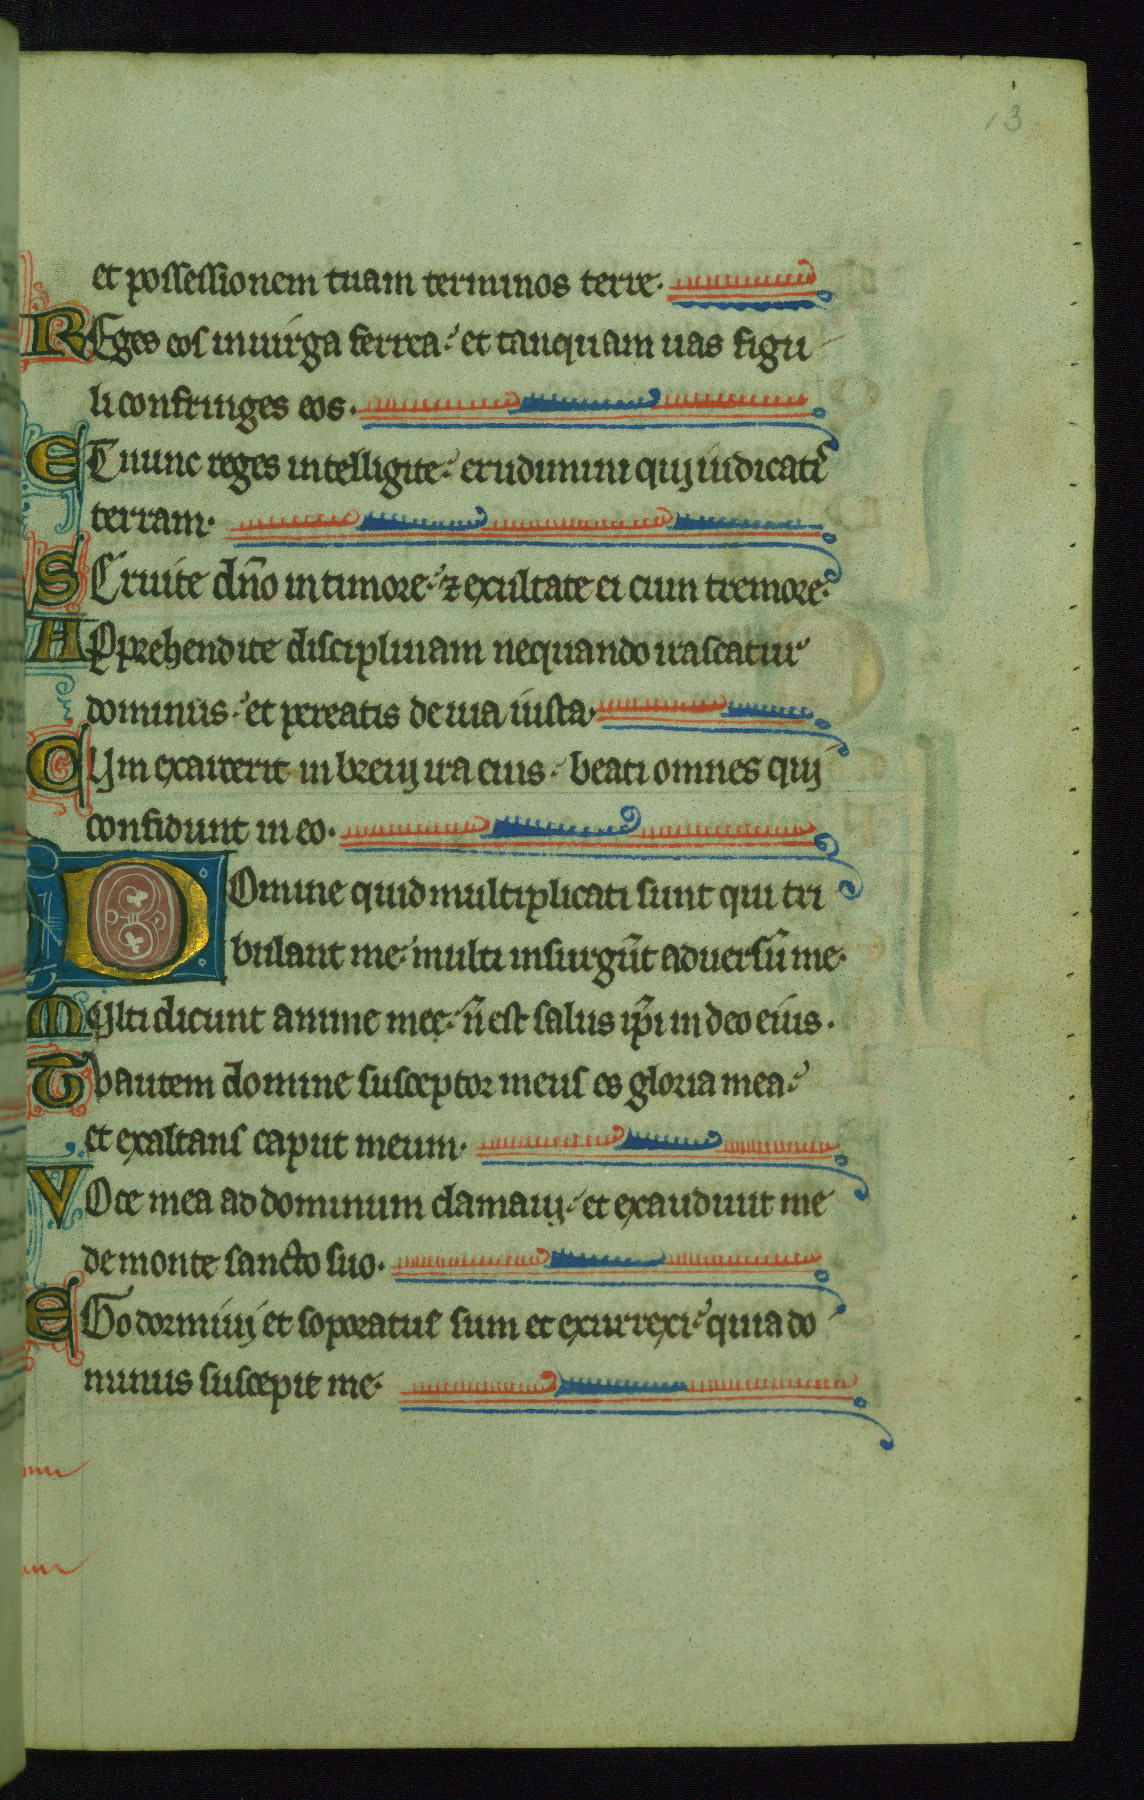 13
et possessionem tuam terminos terre.
REges eos in uirga ferrea: et tanquam uas figu
li confringes eos.
ET nunc reges intelligite: erudimini qui iudicatis
terram.
SEruite dño in timore: ⁊ exultate ei cum tremore.
APprehendite disciplinam nequando irascatur
dominus: et pereatis de uia iusta.
CUm exarserit in breui ira eius: beati omnes qui
confidunt in eo.
DOmine quid multiplicati sunt qui tri
bulant me: multi insurgūt aduersū me.
MUlti dicunt anime mee: ñ est salus ip̃i in deo eius.
TU autem domine susceptor meus es gloria mea:
et exaltans caput meum.
VOce mea ad dominum clamaui: et exaudiuit me
de monte sancto suo.
EGo dormiui et soporatus sum et exurrexi: quia do
minus suscepit me.